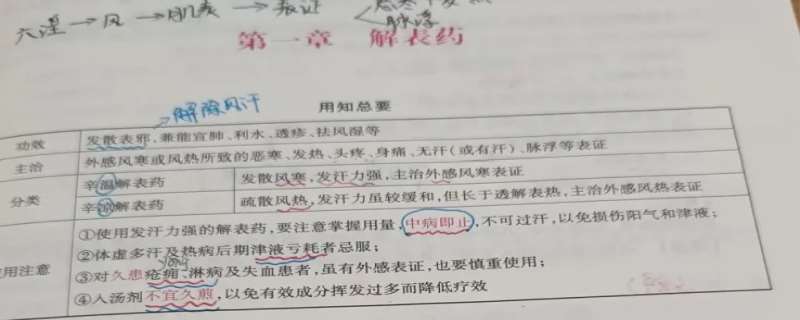 六淫→风→肌表→表证
脉浮
第一章 解表药
解除风汗
用知总要
功效 发散表邪、兼能宣肺、利水、透疹、祛风湿等
主治 外感风寒或风热所致的恶寒、发热、头疼、身痛、无汗(或有汗)、脉浮等表证
分类 辛温解表药 发散风寒,发汗力强,主治外感风寒表证
辛凉解表药 疏散风热,发汗力虽较缓和,但长于透解表热,主治外感风热表证
用注意 ①使用发汗力强的解表药,要注意掌握用量,中病即止,不可过汗,以免损伤阳气和津液;
②体虚多汗及热病后期津液亏耗者忌服;
③对久患疮痈、淋病及失血患者,虽有外感表证,也要慎重使用;
④入汤剂不宜久煎,以免有效成分挥发过多而降低疗效